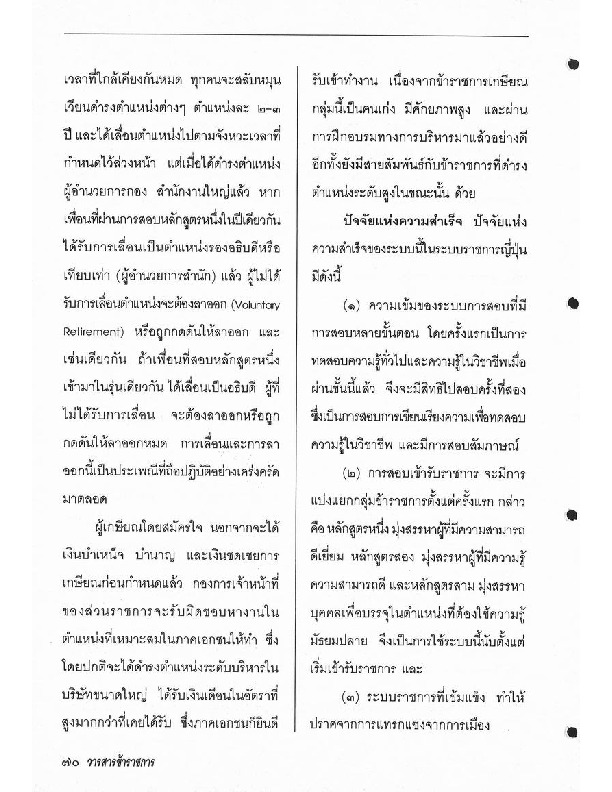 เวลาที่ใกล้เคียงกันหมด ทุกคนจะสลับหมุน
เวียนดำรงตำแหน่งต่างๆ ตำแหน่งละ ๒-๓
ปี และได้เลื่อนตำแหน่งไปตามจังหวะเวลาที่
กำหนดไว้ล่วงหน้า แต่เมื่อได้ดำรงตำแหน่ง
ผู้อำนวยการกอง สำนักงานใหญ่แล้ว หาก
เพื่อนที่ผ่านการสอบหลักสูตรหนึ่งในปีเดียวกัน
ได้รับการเลื่อนเป็นตำแหน่งรองอธิบดีหรือ
เทียบเท่า (ผู้อำนวยการสำนัก) แล้ว ผู้ไม่ได้
รับการเลื่อนตำแหน่งจะต้องลาออก (Voluntary
Retirement) หรือถูกกดดันให้ลาออก และ
เช่นเดียวกัน ถ้าเพื่อนที่สอบหลักสูตรหนึ่ง
เข้ามาในรุ่นเดียวกัน ได้เลื่อนเป็นอธิบดี ผู้ที่
ไม่ได้รับการเลื่อน จะต้องลาออกหรือถูก
กดดันให้ลาออกหมด การเลื่อนและการลา
ออกนี้เป็นประเพณีที่ถือปฏิบัติอย่างเคร่งครัด
มาตลอด
ผู้เกษียณโดยสมัครใจ นอกจากจะได้
เงินบำเหน็จ บำนาญ และเงินชดเชยการ
เกษียณก่อนกำหนดแล้ว กองการเจ้าหน้าที่
ของส่วนราชการจะรับผิดชอบหางานใน
ตำแหน่งที่เหมาะสมในภาคเอกชนให้ทำ ซึ่ง
โดยปกติจะได้ดำรงตำแหน่งระดับบริหารใน
บริษัทขนาดใหญ่ ได้รับเงินเดือนในอัตราที่
สูงมากกว่าที่เคยได้รับ ซึ่งภาคเอกชนก็ยินดี
รับเข้าทำงาน เนื่องจากข้าราชการเกษียณ
กลุ่มนี้เป็นคนเก่ง มีศักยภาพสูง และผ่าน
การฝึกอบรมทางการบริหารมาแล้วอย่างดี
อีกทั้งยังมีสายสัมพันธ์กับข้าราชการที่ดำรง
ตำแหน่งระดับสูงในขณะนั้น ด้วย
ปัจจัยแห่งความสำเร็จ ปัจจัยแห่ง
ความสำเร็จของระบบนี้ในระบบราชการญี่ปุ่น
มีดังนี้
(๑) ความเข้มของระบบการสอบที่มี
การสอบหลายขั้นตอน โดยครั้งแรกเป็นการ
ทดสอบความรู้ทั่วไปและความรู้ในวิชาชีพเมื่อ
ผ่านขั้นนี้แล้ว จึงจะมีสิทธิไปสอบครั้งที่สอง
ซึ่งเป็นการสอบการเขียนเรียงความเพื่อทดสอบ
ความรู้ในวิชาชีพ และมีการสอบสัมภาษณ์
(๒) การสอบเข้ารับราชการ จะมีการ
แบ่งแยกกลุ่มข้าราชการตั้งแต่ครั้งแรก กล่าว
คือ หลักสูตรหนึ่ง มุ่งสรรหาผู้ที่มีความสามารถ
ดีเยี่ยม หลักสูตรสอง มุ่งสรรหาผู้ที่มีความรู้
ความสามารถดี และหลักสูตรสาม มุ่งสรรหา
บุคคลเพื่อบรรจุในตำแหน่งที่ต้องใช้ความรู้
มัธยมปลาย จึงเป็นการใช้ระบบนี้นับตั้งแต่
เริ่มเข้ารับราชการ และ
(๓) ระบบราชการที่เข้มแข็ง ทำให้
ปราศจากการแทรกแซงจากการเมือง
๗๐ วารสารข้าราชการ